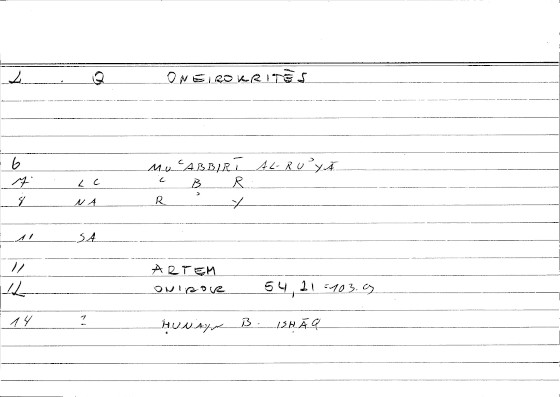 1 . Q ONEIROKRITĒS
6 MUʿABBIRĪ AL-RUʾYĀ
7 LC ʿ B R
8 NA R ʾ Y
11 SA
11 ARTEM
12 ONIROK 54,21 =103.9
14 2 ḤUNAYN B. ISḤĀQ